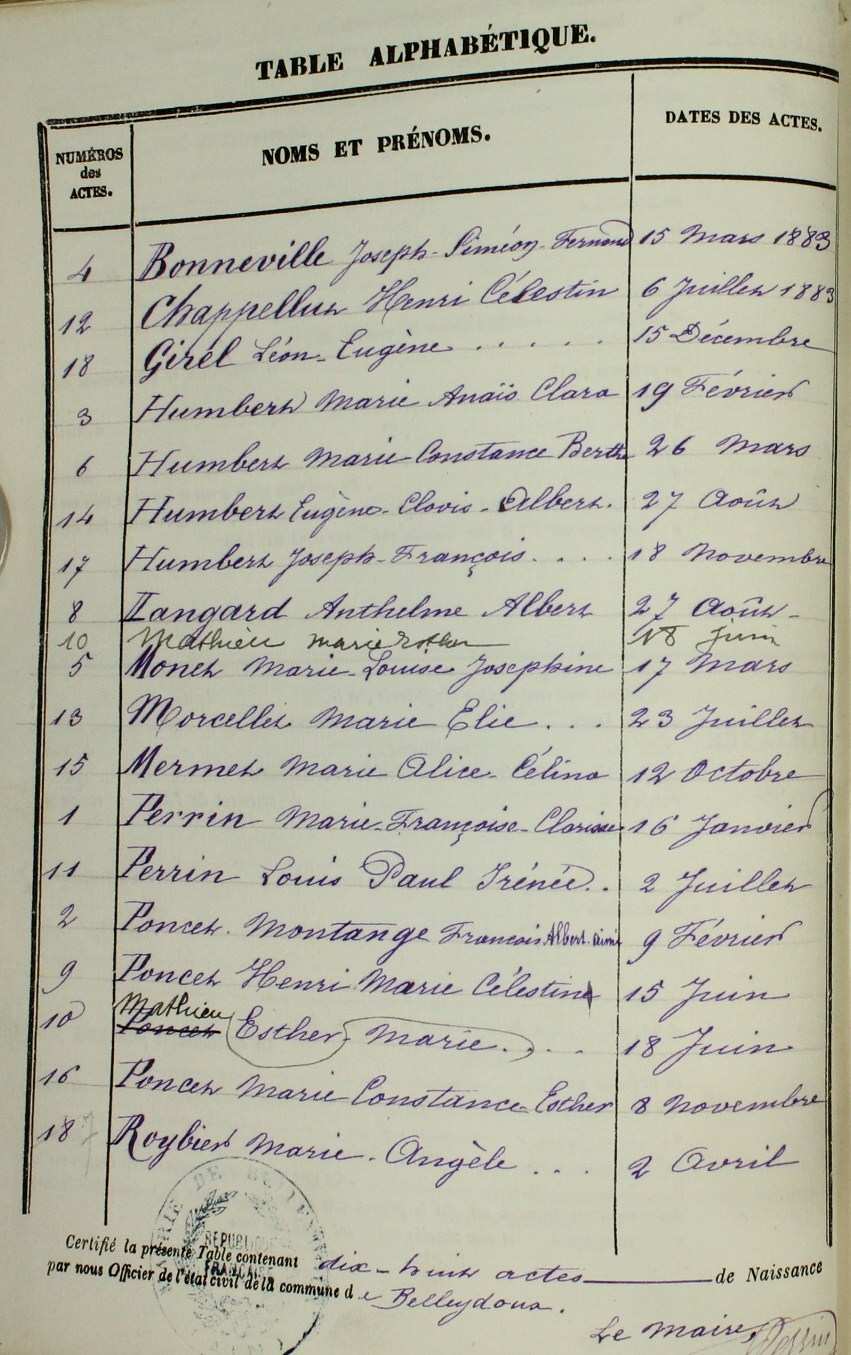 TABLE ALPHABÉTIQUE.
NUMÉROS des ACTES. NOMS ET PRÉNOMS. DATES DES ACTES.
4 Bonneville Joseph-Siméon-Fernand 15 Mars 1883
12 Chappellut Henri Célestin 6 Juillet 1883
18 Girel Léon-Eugène ..... 15 Décembre
3 Humbert Marie Anaïs Clara 19 Février
6 Humbert Marie-Constance Berthe 26 Mars
14 Humbert Eugène-Clovis-Albert. 27 Août
17 Humbert Joseph-François.... 18 Novembre
8 Langard Anthelme Albert 27 Août
10 Mathieu Marie Esther 18 Juin
5 Monet Marie-Louise Josephine 17 Mars
13 Morcellet Marie Elie... 23 Juillet
15 Mermet Marie Alice-Célina 12 Octobre
1 Perrin Marie-Françoise-Clarisse 16 Janvier
11 Perrin Louis Paul Irénée.. 2 Juillet
2 Poncet-Montange Francois Albert Aimé 9 Février
9 Poncet Henri Marie Célestin 15 Juin
Mathieu
10 Poncet Esther-Marie.... 18 Juin
16 Poncet Marie Constance-Esther 8 Novembre
18 7 Roybier Marie-Angèle... 2 Avril
RÉPUBLIQUE
FRANÇAISE
Certifié la présente Table contenant dix-huit actes de Naissance
par nous Officier de l'état civil de la commune de Belleydoux.
Le Maire, Perrin